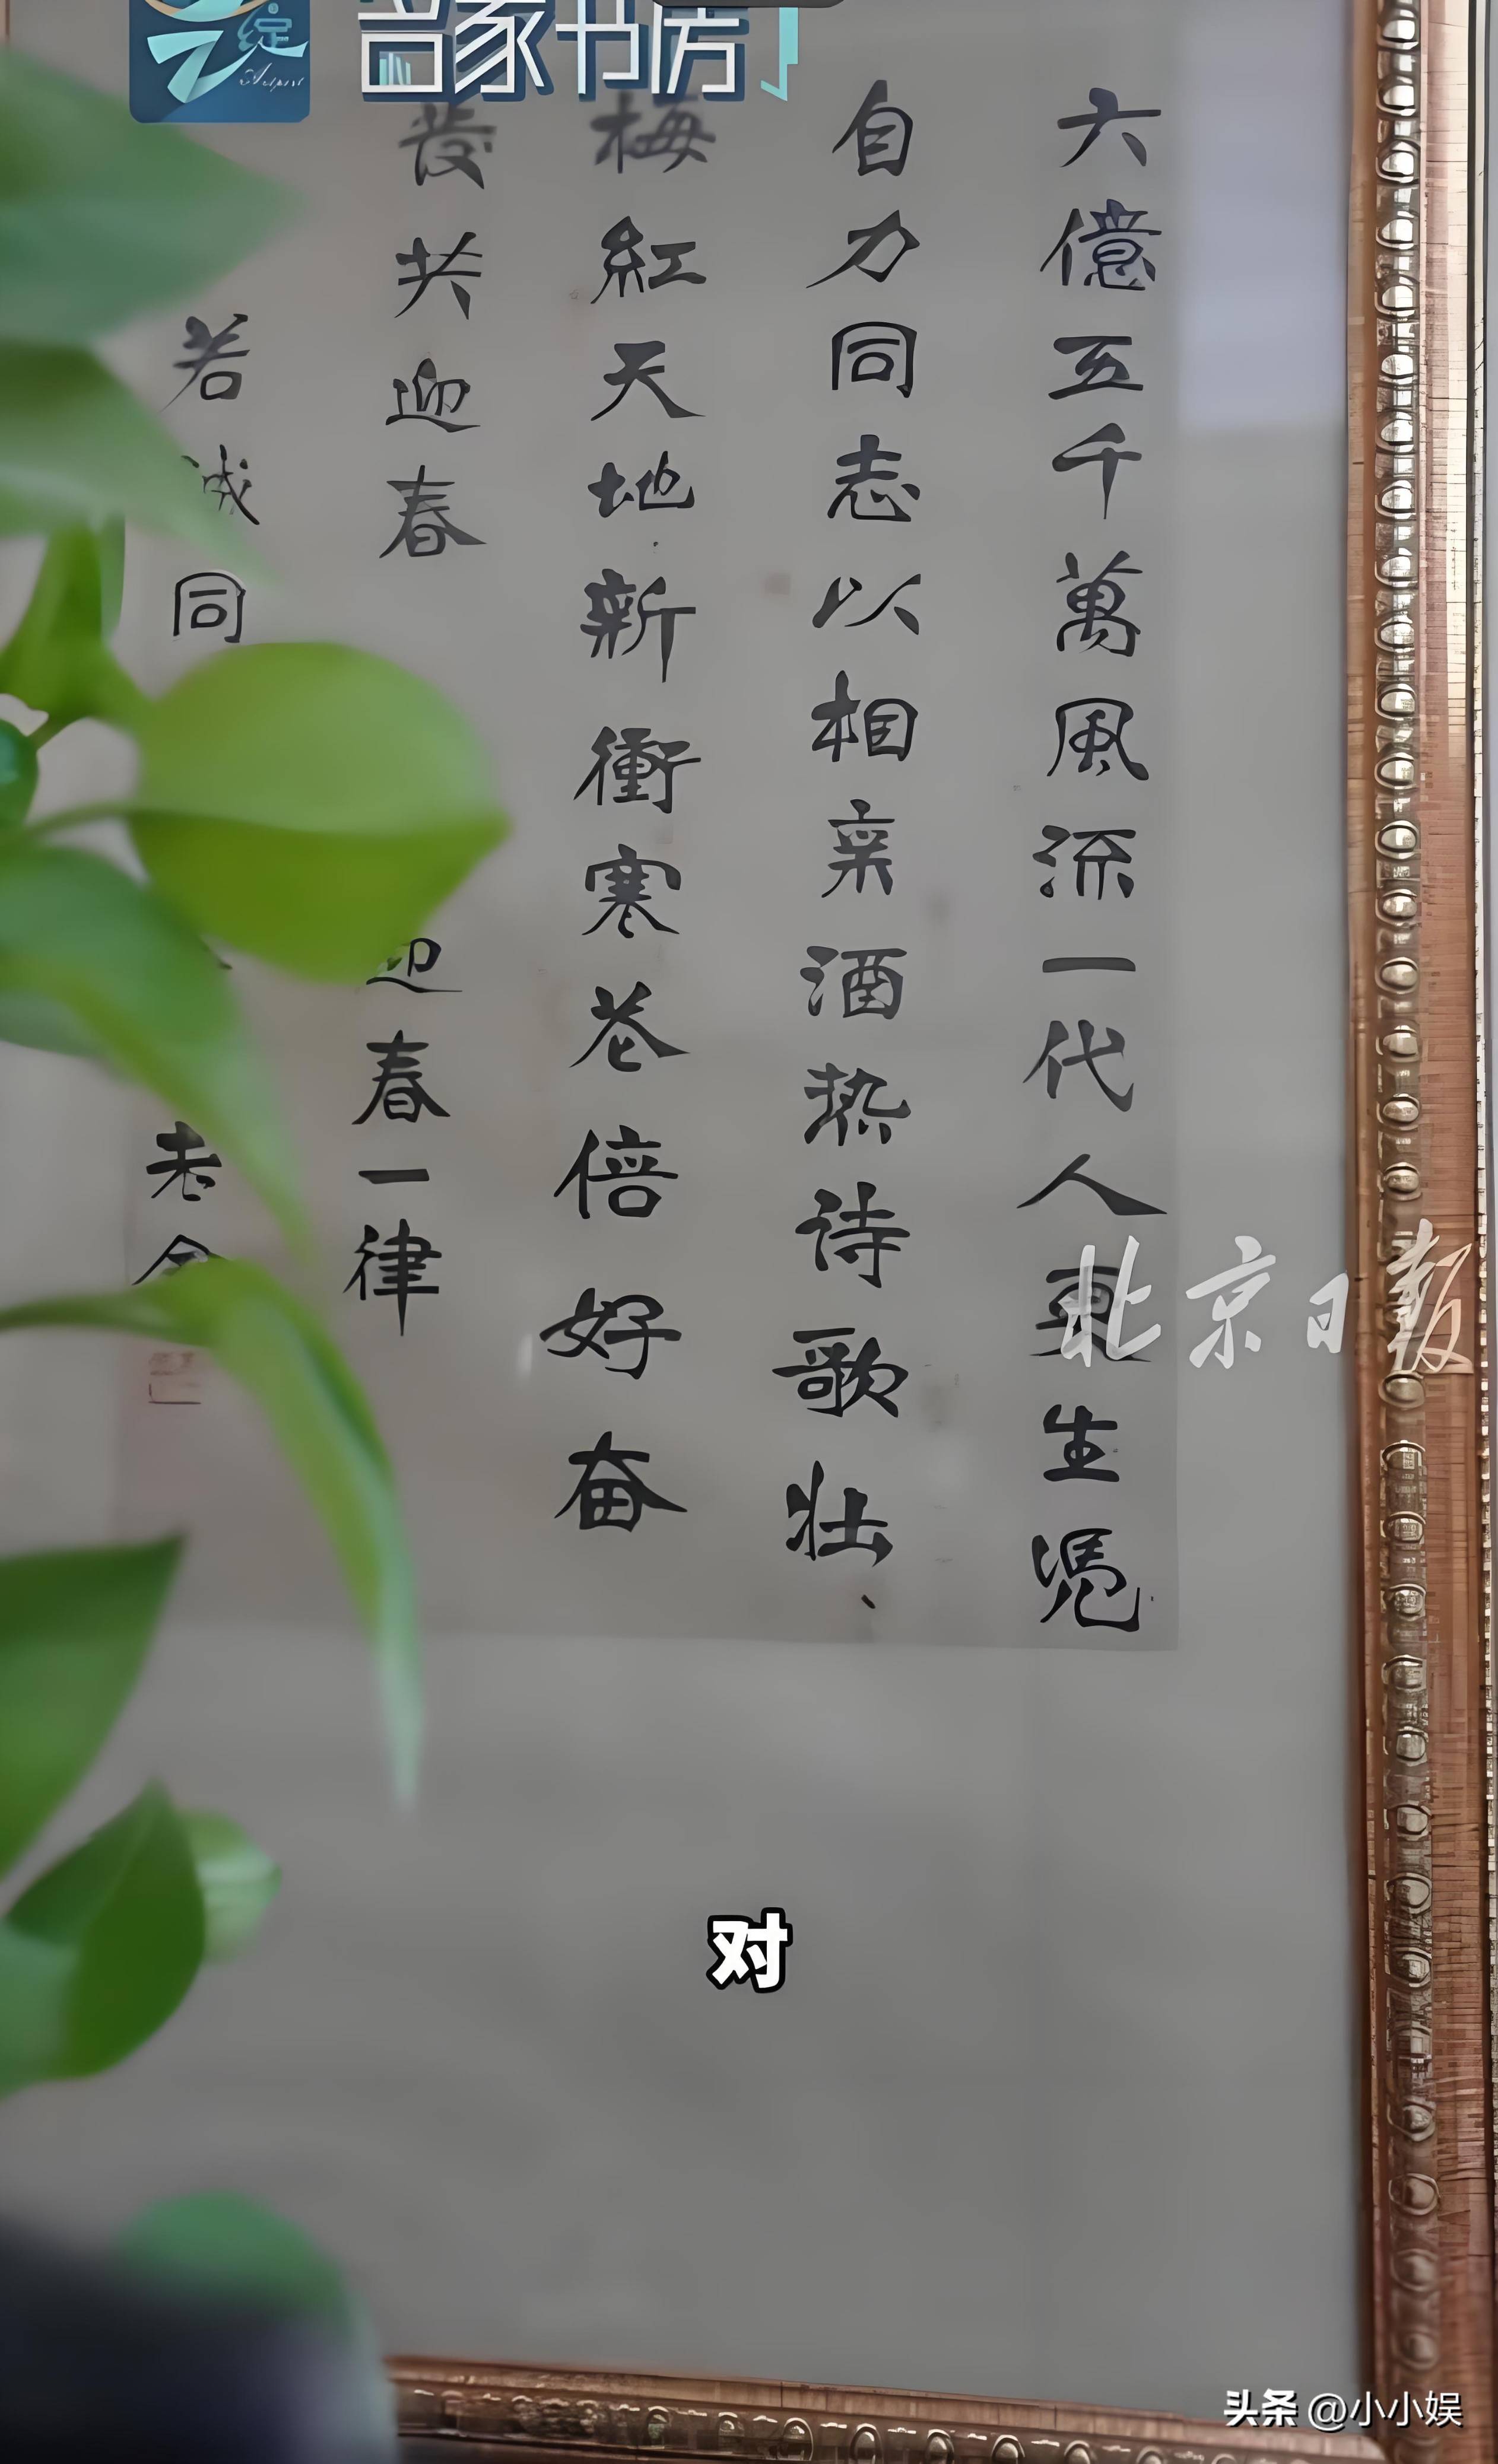 名家书房
六億五千萬風流一代人更生憑
自力同志以相亲酒热诗歌壮
梅紅天地新衝寒花倍好奋
發共迎春
迎春一律
若诚同
老舍
北京日报
对
头条 @小小娱